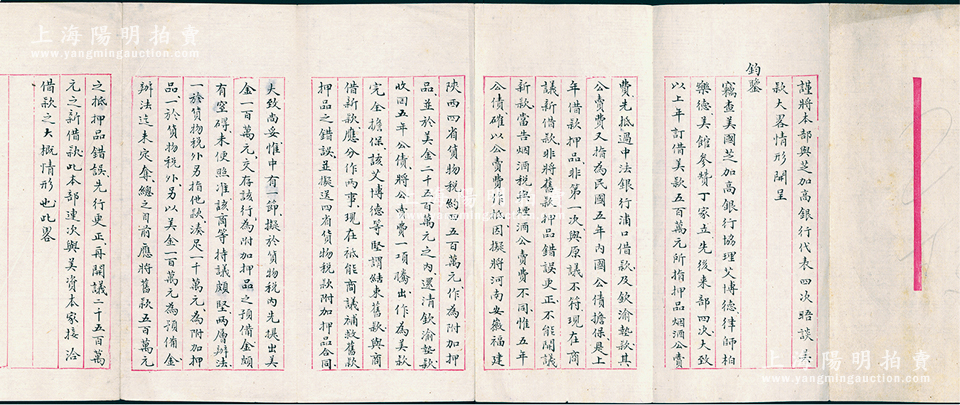 謹將本部與芝加高銀行代表四次晤談去
欵大畧情形開呈
鈞鑒
竊查美國芝加高銀行協理艾博德律師柏
樂德美館參贊丁家立先後来部四次大致
以上年訂借美欵五百萬元所指押品烟酒公賣
費先抵過中法銀行浦口借欵及欽渝墊欵其
公賣費又指為民國五年內國公債擔保是上
年借欵押品非第一次與原議不符現在商
議新借欵非將舊欵押品錯誤更正不能開議
新欵當告烟酒稅與煙酒公賣費不同惟五年
公債確以公賣費作抵因擬將河南安徽福建
陝西四省貨物稅約四五百萬元作為附加押
品並於美金二千五百萬元之內還清欽渝墊欵
收回五年公債將公賣費一項騰出作為美欵
完全擔保該艾博德等堅謂姑束舊欵與商
借新欵應分作兩事現在祗能商議補救舊欵
押品之錯誤並擬送四省貨物稅欵附加押品合同
大致尚妥惟中有一節擬於貨物稅內先提出美
金一百萬元交存該行為附加押品之預備金頗
有窒碍未便照准該商等持議頗堅兩層辦法
一於貨物稅外另指他欵湊足一千萬元為附加押
品一於貨物稅外另以美金一百萬元為預備金
辦法迄未定奪總之目前應將舊欵五百萬元
之抵押品錯誤先行更正再開議二千五百萬
元之新借欵此本部連次與美資本家接洽
借欵之大概情形也此畧
上海陽明拍賣
www.yangmingauction.com
上海陽明拍賣
www.yangmingauction.com